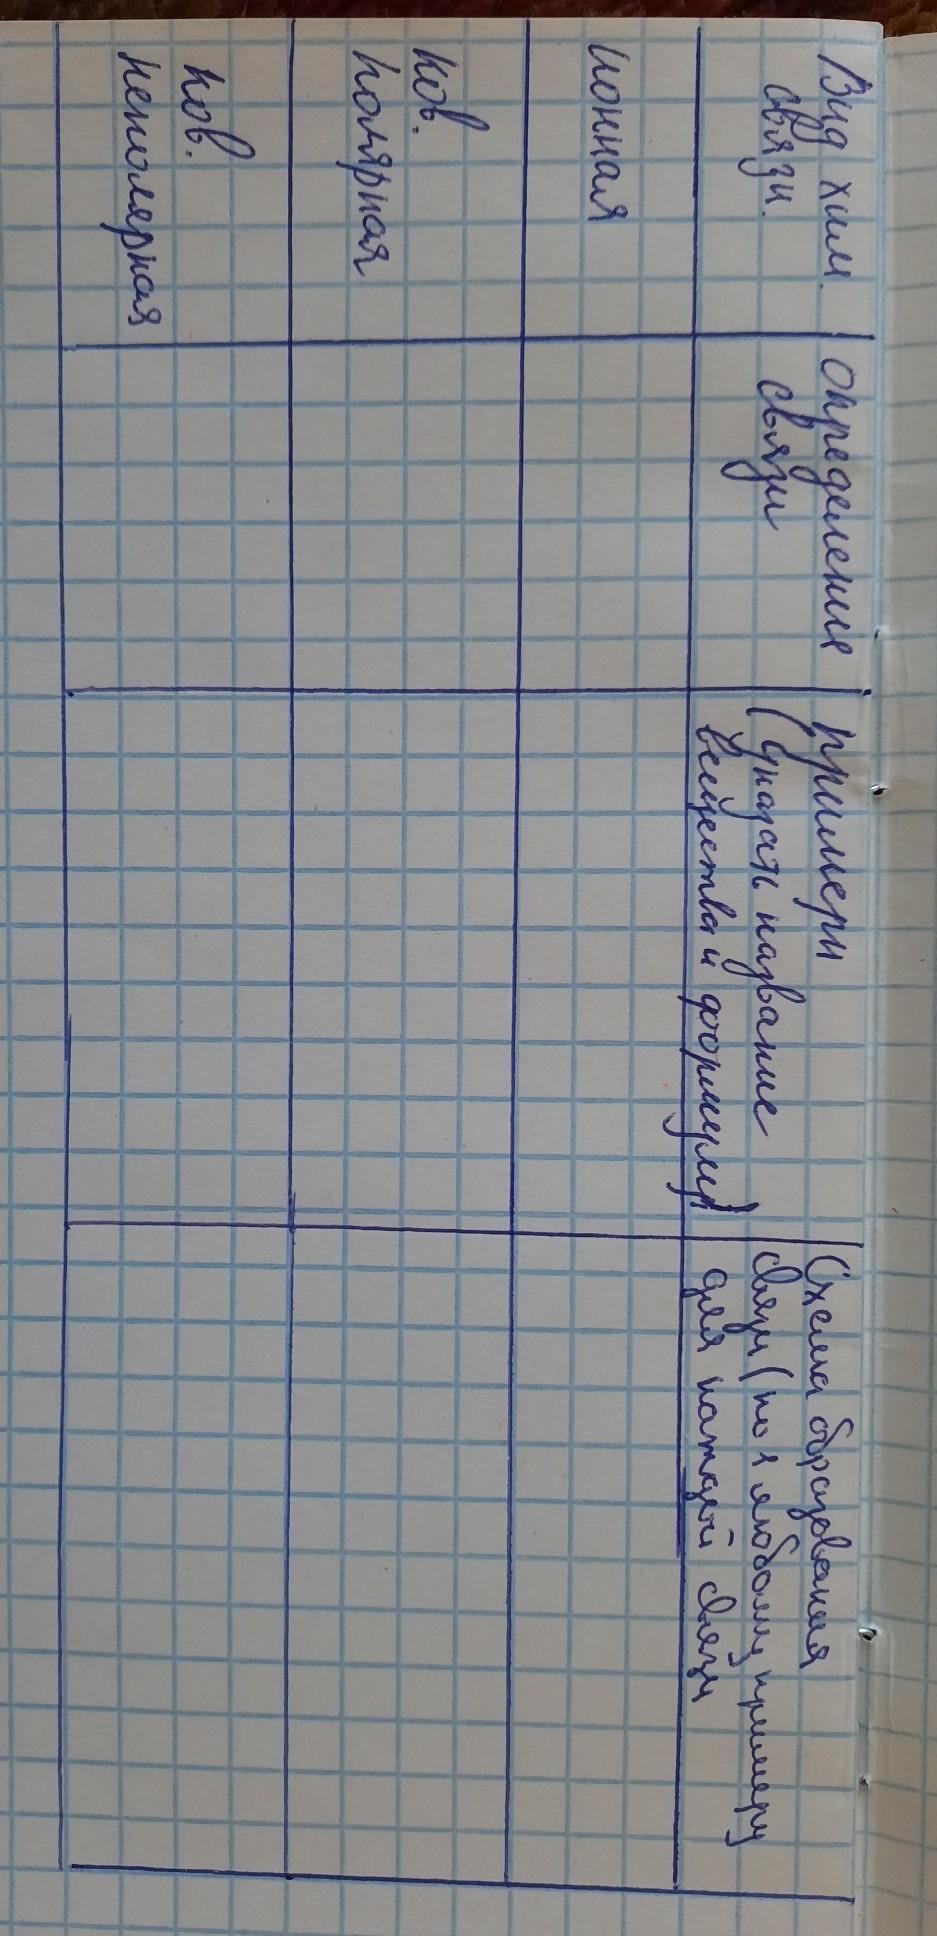 Вид хим.
связи.
определение
связи
примеры
(указать название
вещества и формулу)
Схема образования
связи (по 1 любому примеру
для каждой связи
ионная
ков.
полярная
ков.
неполярная